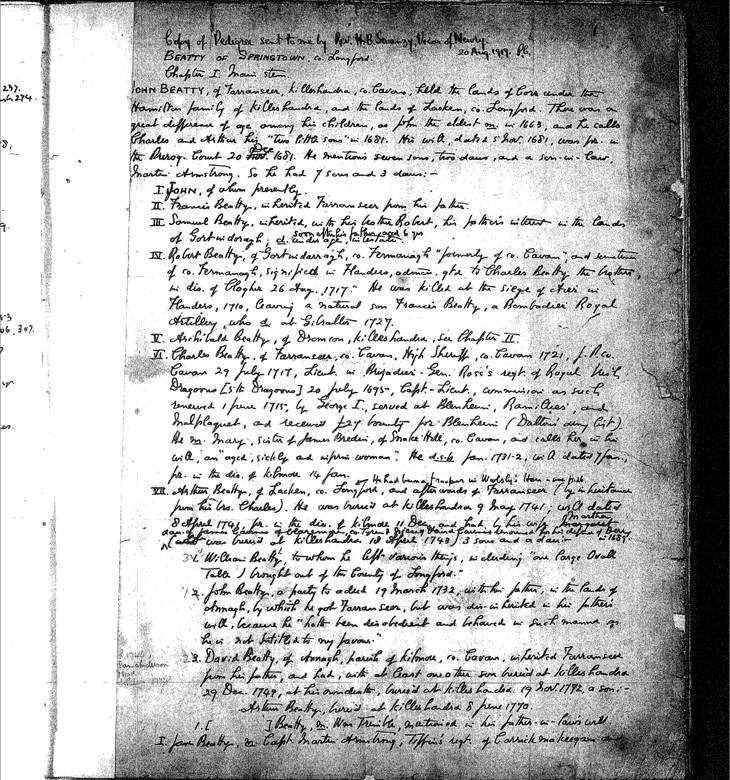 237.
274.
8,
9.
-3
06, 307.
?
es.
Copy of Pedigree sent to me by Rev. H. B. Swanzy, Vicar of Newry.
20 Aug 1919. P.C.
BEATTY OF SPRINGTOWN, co. Longford.
Chapter I. Main stem
JOHN BEATTY, of Farranseer, Killeshandra, co. Cavan, held the lands of Corr under the
Hamilton family of Killeshandra, and the lands of Lacken, co. Longford. There was a
great difference of age among his children, as John the eldest m. in 1663, and he calls
Charles and Arthur his "two little sons" in 1681. His will, dated 5 Nov. 1681, was pr. in
the Prerog. Court 20 Dec 1681. He mentions seven sons, two daus, and a son-in-law,
Martin Armstrong. So he had 7 sons and 3 daus:-
I. JOHN, of whom presently.
II. Francis Beatty, inherited Farranseer from his father.
III. Samuel Beatty, inherited, with his brother Robert, his father's interest in the lands
soon after his father, aged 6 yrs
of Gortwidoragh; d. under age, intestate.
IV. Robert Beatty, of Gortwidarragh, co. Fermanagh "formerly of co. Cavan", and sometimes
of co. Fermanagh, in Flanders, admon. gtd to Charles Beatty the brother,
in dio. of Clogher 26 Aug. 1717. He was killed at the siege of in
Flanders, 1710, leaving a natural son Francis Beatty, a Bombadier Royal
Artillery, who d. at Gibraltar 1727.
V. Archibald Beatty, of Dromcon, Killeshandra, see Chapter II.
VI. Charles Beatty, of Farranseer, co. Cavan, High Sheriff, co. Cavan 1721, J.P. co.
Cavan 29 July 1717, Lieut. in Brigadier-Gen. Ross's regt. of Royal Irish
Dragoons [5th Dragoons] 20 July 1695, Capt-Lieut., commission as such
renewed 1 June 1715, by George I., served at Blenheim, Ramillies, and
Malplaquet, and received £27 bounty for Blenheim (Dalton's army list).
He m. Mary, sister of James Bredin, of Snake Hill, co. Cavan, and calls her in his
will, an "aged, sickly and infirm woman". He d.s.p. Jan. 1731-2, will dated 7 Jan.,
pr. in the dio. of Kilmore 14 Jan.
He had been a trooper in Wolsly's Horse
VII. Arthur Beatty, of Lacken, co. Longford, and afterwards of Farranseer (by inheritance
from his bro. Charles). He was buried at Killeshandra 9 May 1741; will dated
8 April 1748, pr. in the dio. of Kilmore 11 Dec, and had, by his wife Martha
dau of James Cairnes of co. Tyrone David Cairnes renowned for his defence of Derry
in 1689.
(who was buried at Killeshandra 18 April 1748) 3 sons and a dau:-
3 1. William Beatty, to whom he left various things, including "one large Ovall
Table I brought out of the County of Longford."
1 2. John Beatty, a party to a deed 19 March 1732, with his father, in the lands of
Annagh, by which he got Farranseer, but was dis-inherited in his father's
will, because he "hath been disobedient and behaved in such manner as
he is not Intitled to my favour."
2 3. David Beatty, of Annagh, parish of Kilmore, co. Cavan, inherited Farranseer
from his father, and had, with at least one other son buried at Killeshandra
29 Dec. 1749, at his own death, buried at Killeshandra 19 Nov. 1792, a son:-
Arthur Beatty, buried at Killeshandra 8 June 1770.
1. [ ] Beatty, m. Wm Trimble, mentioned in his father-in-law's will.
I. Jane Beatty, m. Capt. Martin Armstrong, Tiffin's regt. of Carrickmakeegan and